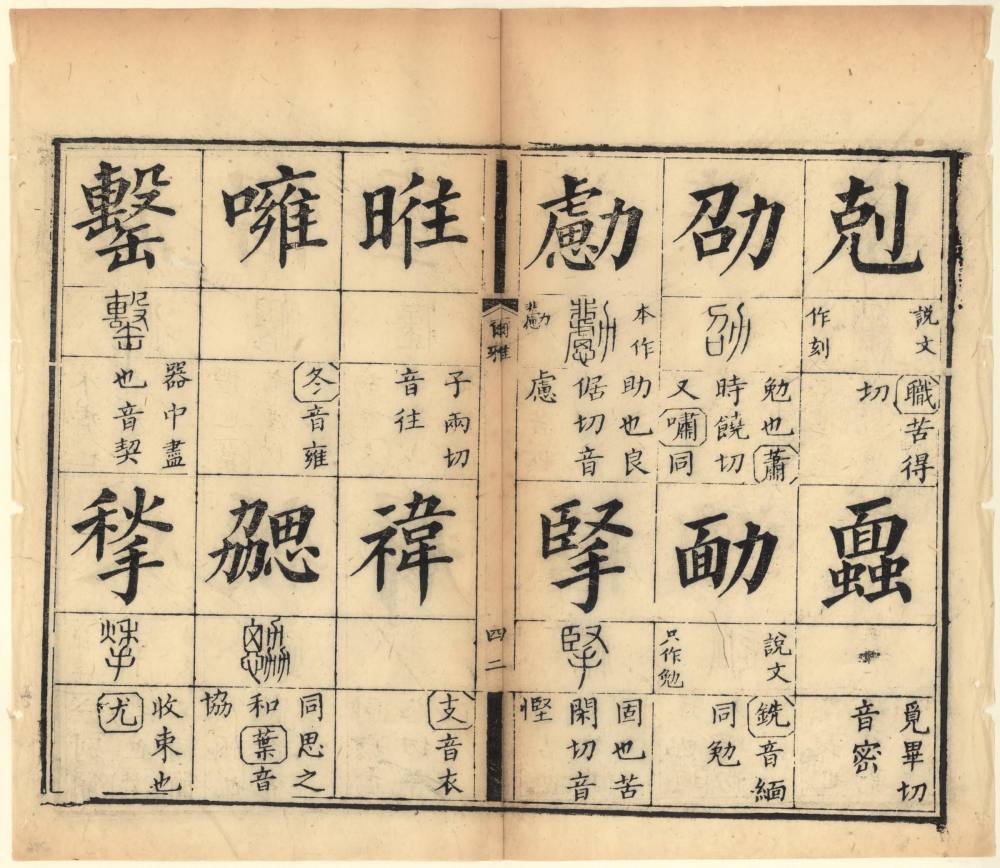 剋
說文
作刻
職苦得
切
覓畢切
音密
劭
勉也蕭
時饒切
又嘯同
勔
說文
只作勉
銑音緬
同勉
勴
本作
助也良
倨切音
慮
掔
固也苦
閑切音
慳
爾雅
四二
暀
子兩切
音往
禕
支音衣
噰
冬音雍
勰
同思之
和葉音
協
罊
器中盡
也音契
揫
收東也
尤